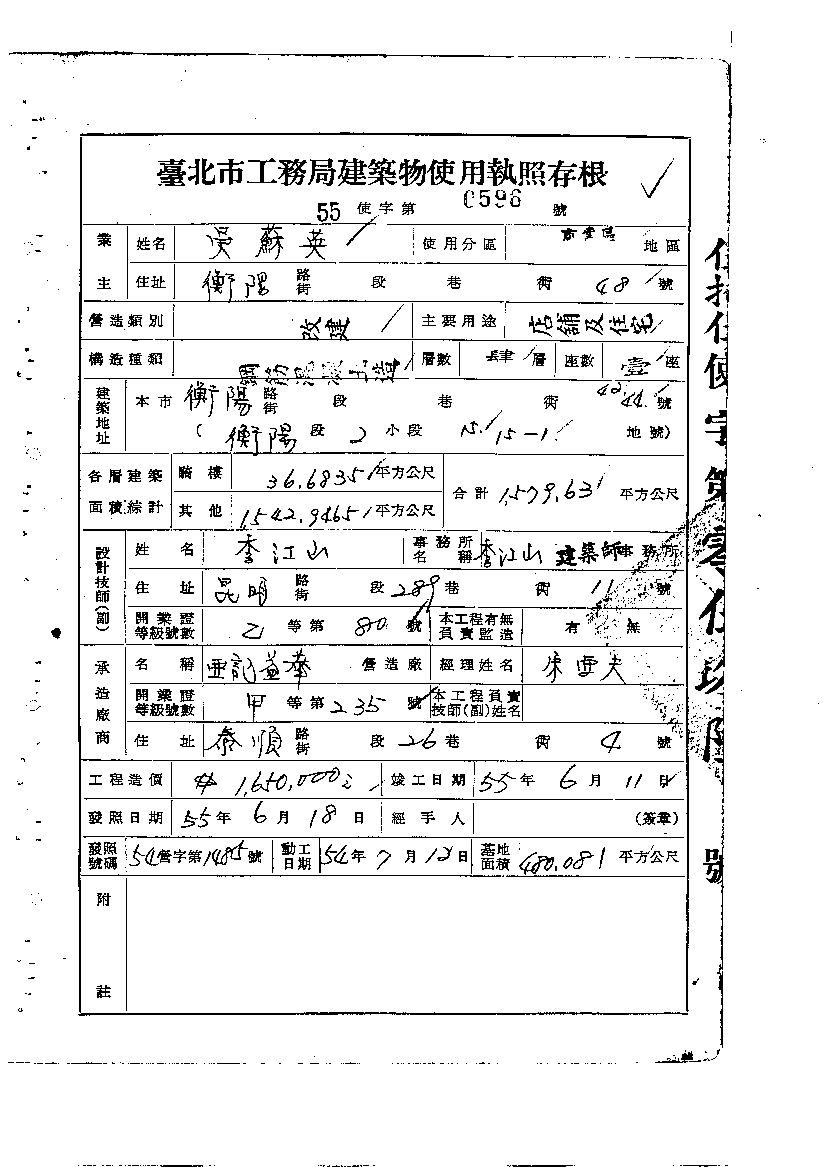 臺北市工務局建築物使用執照存根
55 使字第 0596 號
業主 姓名 吳蘇英 使用分區 商業區 地區
住址 衡陽 路街 段 巷 街 48 號
營造類別 改建 主要用途 店舖及住宅
構造種類 鋼筋混凝土造 層數 肆 層 座數 壹 座
建築地址 本市 衡陽 路街 段 巷 街 42.44. 號
( 衡陽 段 2 小段 15/15-1 地號)
各層建築面積綜計 騎樓 36.6835 平方公尺 合計 1,579.63 平方公尺
其他 1,542.9465 平方公尺
設計技師(副) 姓名 李江山 事務所名稱 李江山 建築師事務所
住址 昆明 路街 段 289 巷 街 11 號
開業證等級號數 乙 等第 80 號 本工程有無負責監造 有 無
承造廠商 名稱 營造廠 經理姓名
開業證等級號數 甲 等第 235 號 本工程負責技師(副)姓名
住址 泰順 路街 段 26 巷 街 4 號
工程造價 1,650,000 竣工日期 55 年 6 月 11 日
發照日期 55 年 6 月 18 日 經手人 (簽章)
發照號碼 54 營字第 1485 號 動工日期 54 年 7 月 12 日 基地面積 480.081 平方公尺
附註
使字第零伍玖陸號